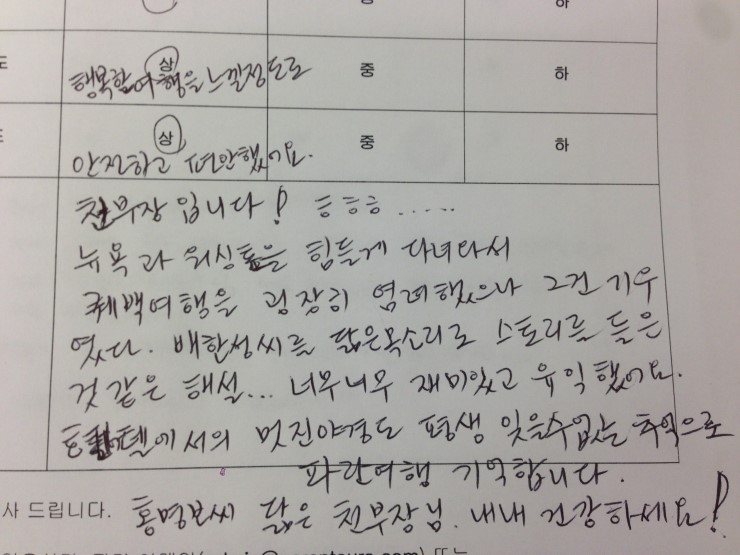 하
도 상 중 하
행복한 여행을 느낄정도로
도 상 중 하
안전하고 편안했어요.
천부장 입니다! ㅎㅎㅎ ......
뉴욕과 워싱톤을 힘들게 다녀와서
퀘백여행을 굉장히 염려했으나 그건 기우
였다. 배한성씨를 닮은목소리로 스토리를 들은
것 같은 해설... 너무너무 재미있고 유익했어요.
호텔에서의 멋진야경도 평생 잊을수없는 추억으로
파란여행 기억합니다.
사 드립니다. 홍명보씨 닮은 천부장님. 내내 건강하세요!